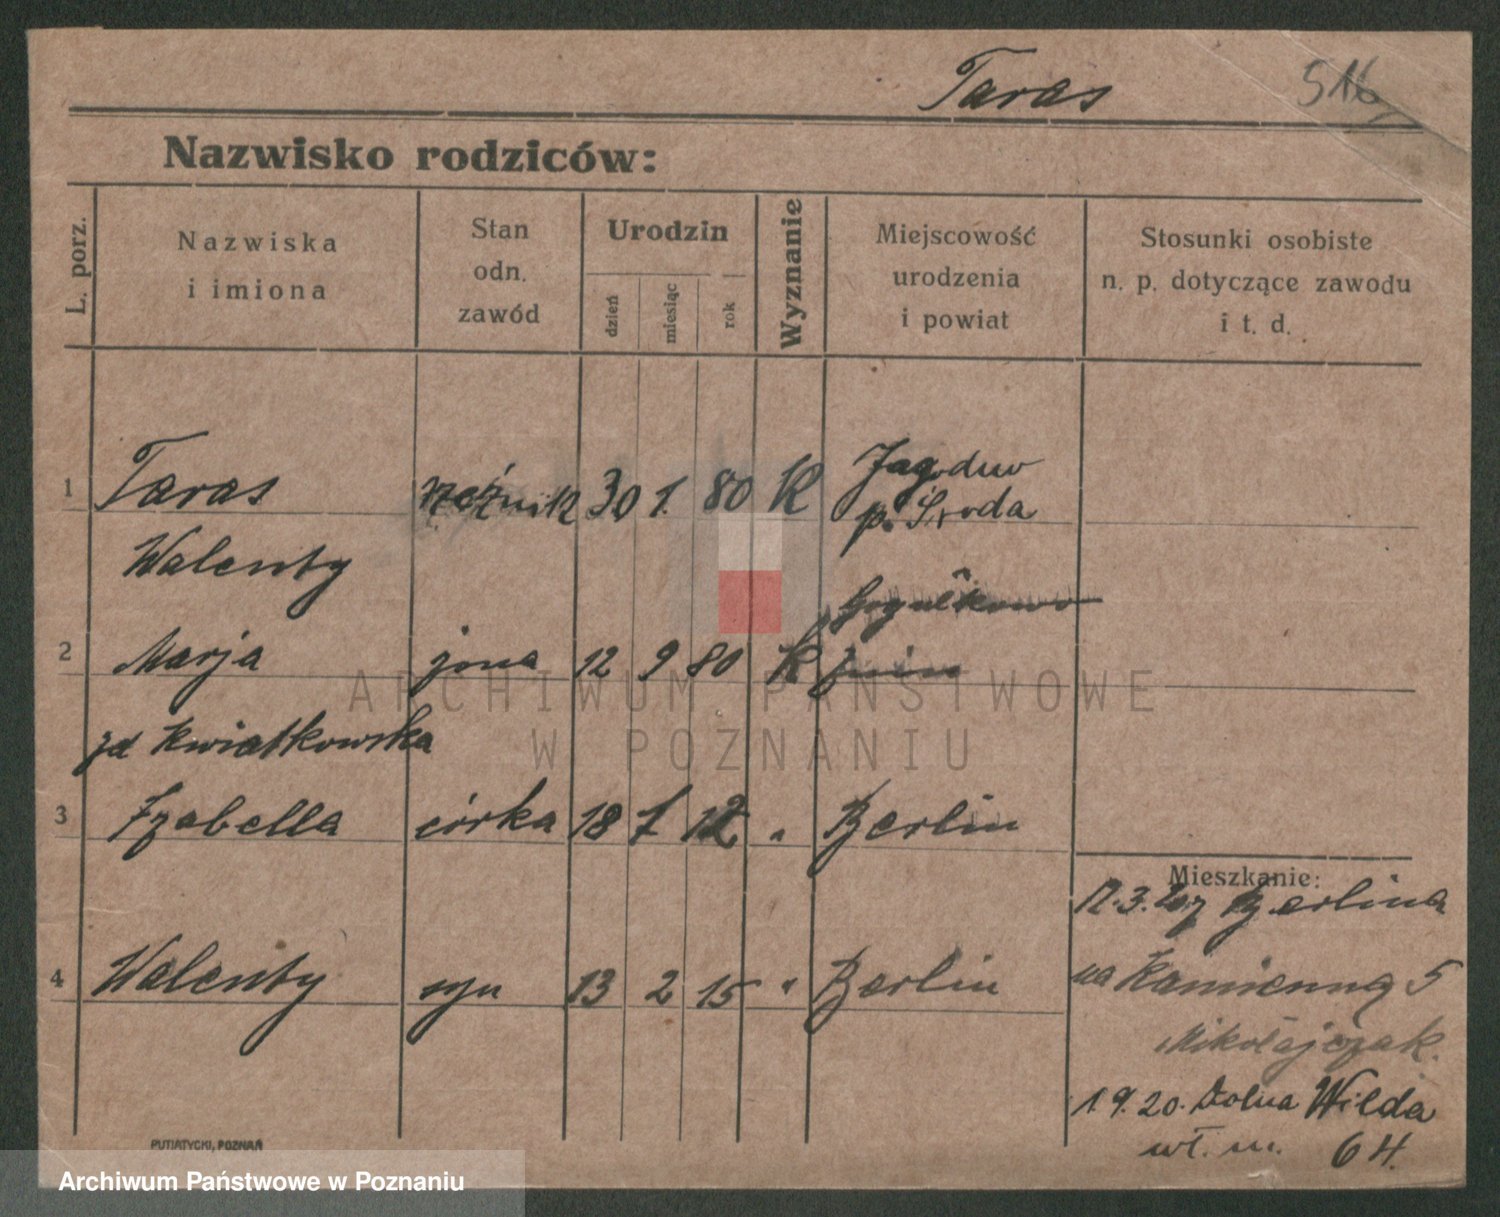 Taras 516
Nazwisko rodziców:
L. porz.
Nazwiska
i imiona
Stan
odn.
zawód
Urodzin
dzień
miesiąc
rok
Wyznanie
Miejscowość
urodzenia
i powiat
Stosunki osobiste
n. p. dotyczące zawodu
i t. d.
Jagoduw
1 Taras rzeźnik 30 1. 80 K p. Środa
Walenty
2 Marja żona 12 9 80 K
zd Kwiatkowska
3 Izabella córka 18 1 12 " Berlin
Mieszkanie:
z Berlina
4 Walenty syn 13 2 15 " Berlin
na Kamienną 5
Mikołajczak.
1 9. 20. Dolna Wilda
wł. m. 64.
PUTIATYCKI, POZNAŃ
ARCHIWUM PAŃSTWOWE
W POZNANIU
Archiwum Państwowe w Poznaniu